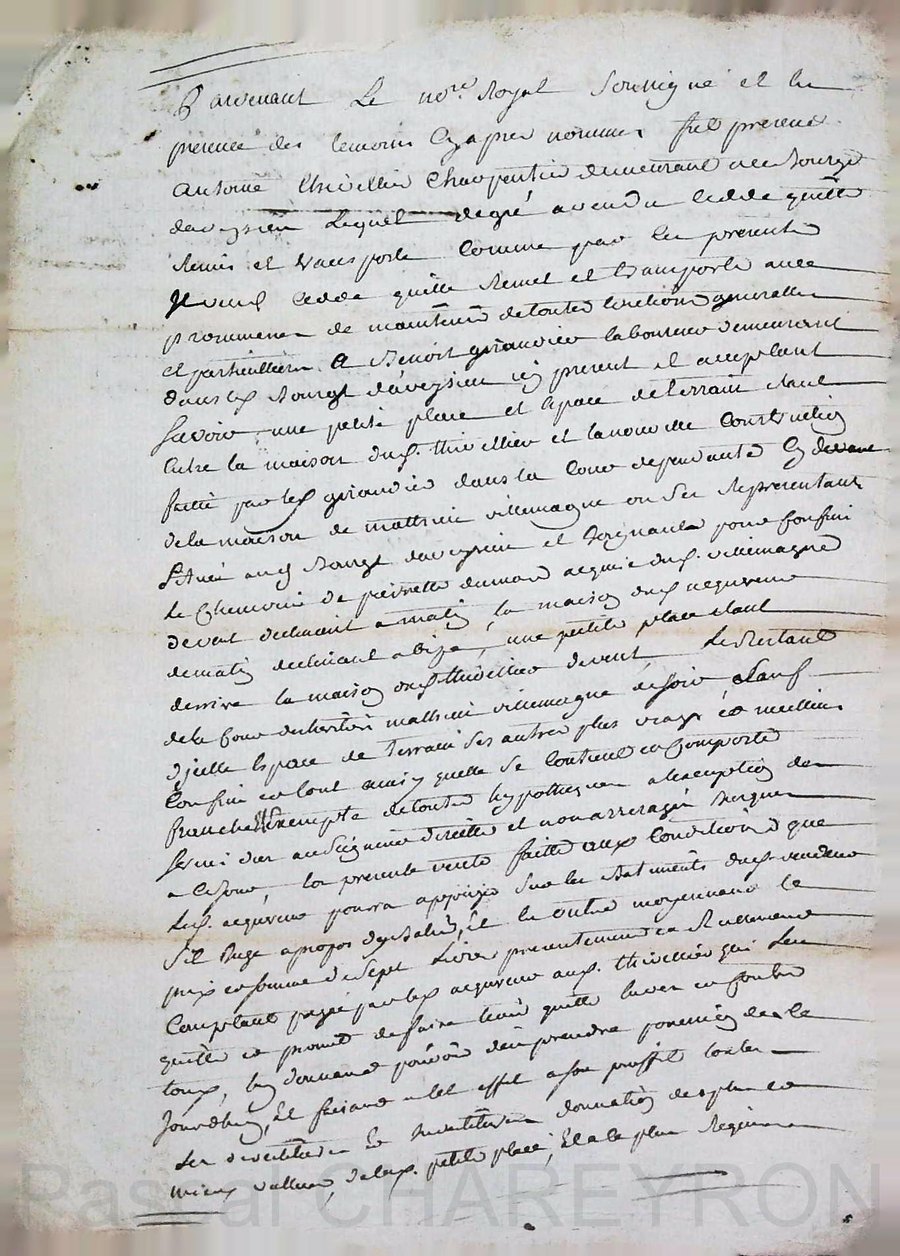 Pardevant Le no.re Royal Soussigné et en
presence des temoins cy apres nommes fut present
Antoine thivellier Charpentier demeurant au Bourg
daveyzieu Lequel degré a vendu cedde quitte
Remis et transporte comme par les presente
Il vend cedde quitte Remet et transporte avec
promesse de maintenir de toutes evictions generalles
et particullieres A Benoit giraudier laboureur demeurant
dans led. Bourgt daveyzieu icy present et acceptant
Savoir une petite place et espace de terrain étant
entre la maison dud. thivellier et la nouvelle Construction
faitte par led. giraudier dans la Cour dependante cy devant
de la maison de matthieu villemagne ou ses Representants
Situé aud. Bourgt daveyzieu et Joignants pour Confins
Le Chemin de pierrette dumond acquis dud. villemagne
devent declinant a matin, la maison dud. acquereur
de matin declinant a bize, une petite place étant
derrier la maison dud. thivellier devent Le Restant
de la Cour des heritiers matthieu villemagne de soir Sauf
dicelle Espace de terrain Ses autres plus vrays et meilleurs
Confins et tout ainsy quelle se Contient et Comporte
franche Exempte de toutes hypotheques a l'exception des
servis dus au Seigneur directe et non arreragés Jusques
a ce Jour la presente vente faitte aux Conditions que
Led. acquereur pourra appuyer sur les Batiments dud. vendeur
S'il Juge apropos dy Batir, et en outre moyennant le
prix et somme de Sept Livres presentement et Reellement
Comptant payé par led. acquereur aud. thivellier qui Len
quitte et promet de faire tenir quitte envers et contre
tous, luy donnant pouvoir d'en prendre possession des ce
Jourdhuy, Et faisant a cet effet a son proffit toutes
Les devestitures Et Investitures donnation de plus et
mieux vallue, de lad. petite place, Et a la plus
Pascal CHAREYRON